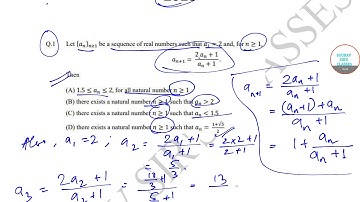 Q.1 Let {aₙ}ₙ≥₁ be a sequence of real numbers such that a₁ = 2 and, for n ≥ 1,
aₙ₊₁ = (2aₙ + 1)/(aₙ + 1)
Then
(A) 1.5 ≤ aₙ ≤ 2, for all natural number n ≥ 1
(B) there exists a natural number n ≥ 1 such that aₙ > 2
(C) there exists a natural number n ≥ 1 such that aₙ < 1.5
(D) there exists a natural number n ≥ 1 such that aₙ = (1+√5)/2
Also, a₁ = 2; a₂ = (2a₁ + 1)/(a₁ + 1) = (2×2+1)/(2+1) = 5/3
a₃ = (2a₂ + 1)/(a₂ + 1) = = 13
aₙ₊₁ = (2aₙ + 1)/(aₙ + 1)
= ((aₙ + 1) + aₙ)/(aₙ + 1)
= 1 + aₙ/(aₙ + 1)